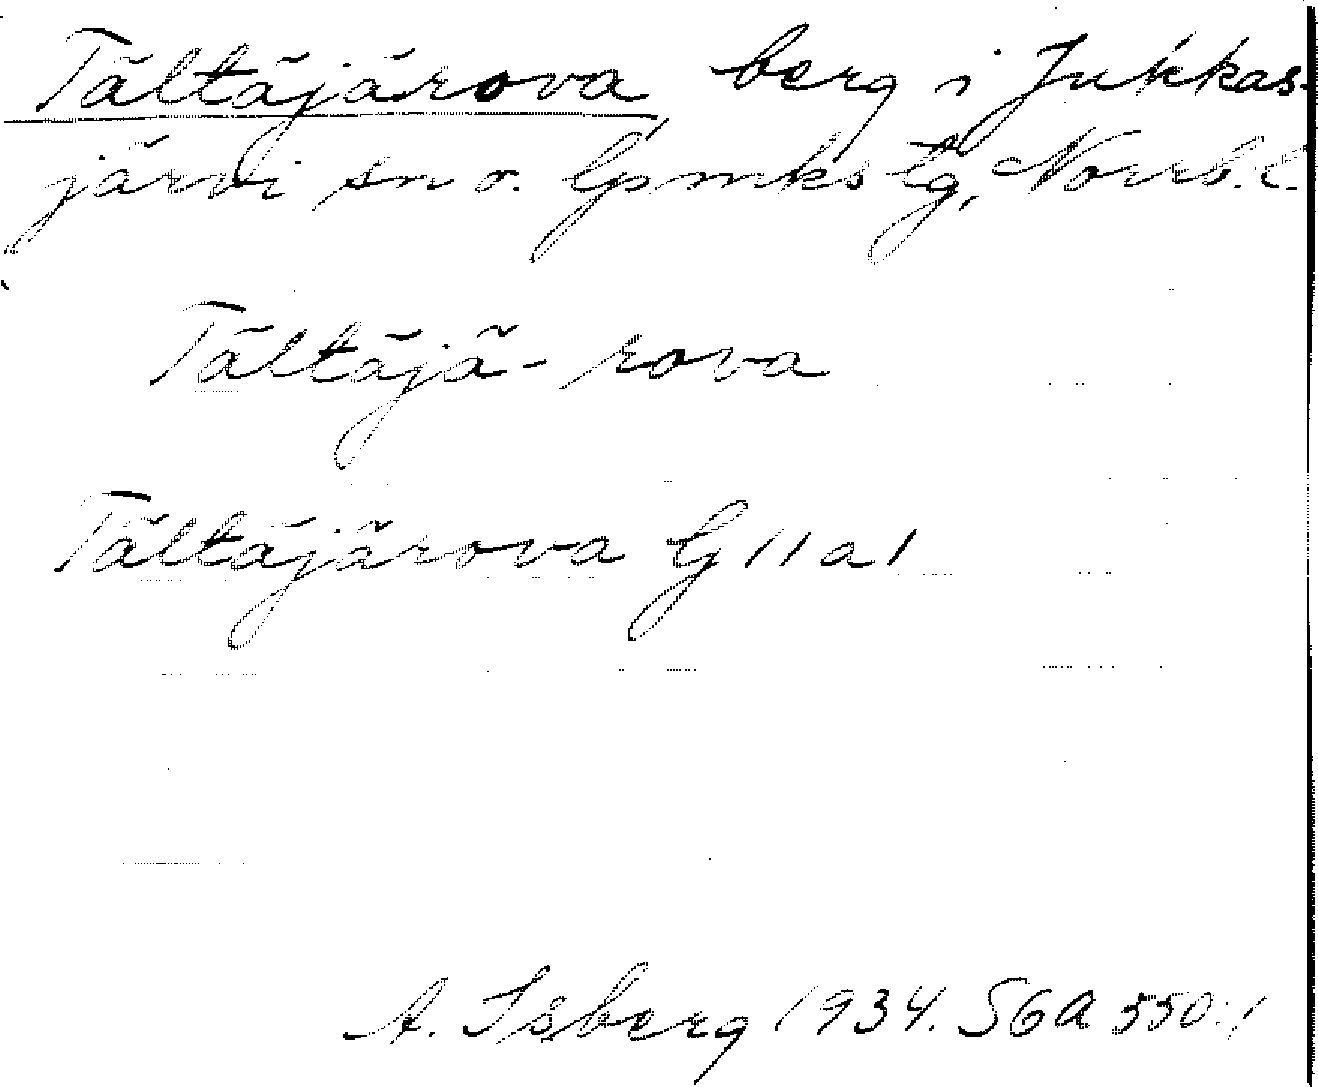 Tältäjärova berg i Jukkas-
järvi sn o. Gsmkstg, Norrb. l.
Tältäjä-rova
Tältäjärova G 11 a 1
A. Isberg 1934. SGA 550:1